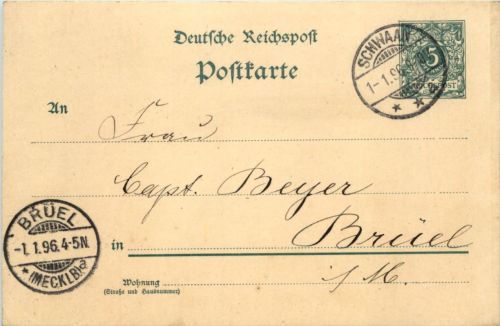 Deutsche Reichspost
Postkarte
SCHWAAN
1-1.96.
5
An
Frau
Capt. Beyer
in Brüel
i/M.
BRÜEL
-1.1.96.4-5N.
* (MECKLB)a
Wohnung
(Straße und Hausnummer)